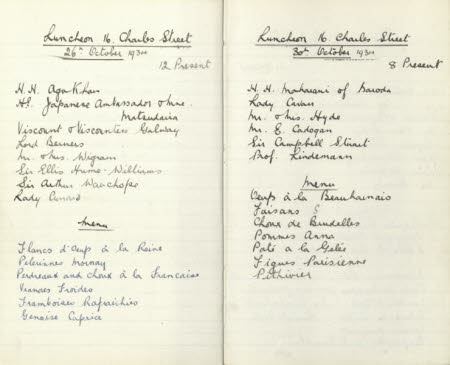 Luncheon 16. Charles Street
26th October 1934
12 Present
H.H. Aga Khan
HE. Japanese Ambassador & Mme.
Matsudaira
Viscount & Viscountess Galway
Lord Berners
Mr. & Mrs. Wigram
Sir Ellis Hume-Williams
Sir Arthur Wauchope
Lady Cunard
Menu
Flancs d'Oeufs à la Reine
Pelerines Mornay
Perdreaux aux Choux à la Francaise
Viandes Froides
Framboises Rafraichies
Genoise Caprice
Luncheon 16. Charles Street
30th October 1934
8 Present
H.H. Maharani of Baroda
Lady Cavan
Mr. & Mrs. Hyde
Mr. E. Cadogan
Sir Campbell Stuart
Prof. Lindemann
Menu
Oeufs à la Beauharnais
Faisans
Choux de Bruxelles
Pommes Anna
Paté a la Gelée
Figues Parisienne
Pithivier